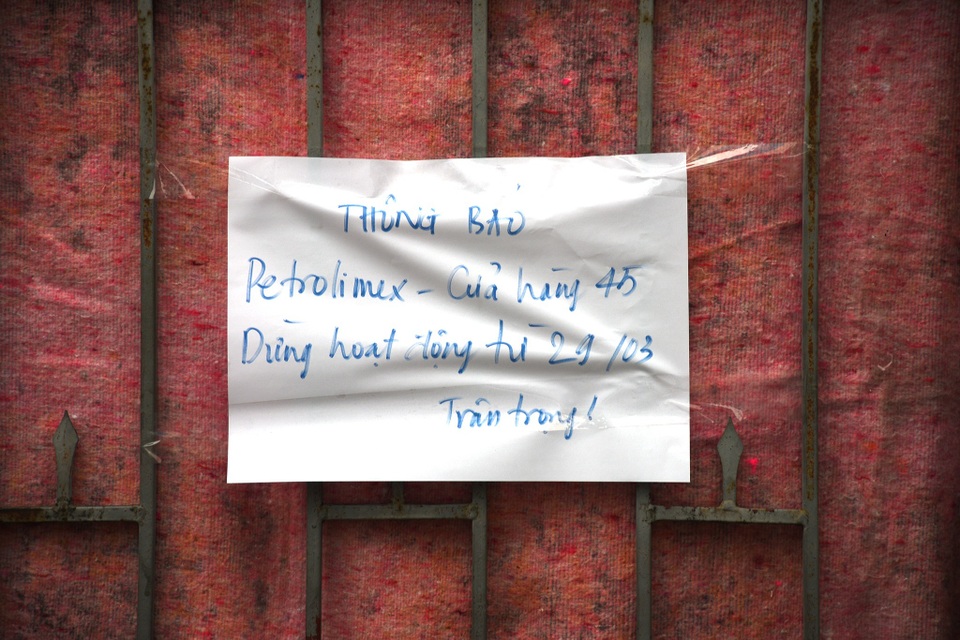 THÔNG BÁO
Petrolimex - Cửa hàng 45
Dừng hoạt động từ 29/03
Trân trọng!